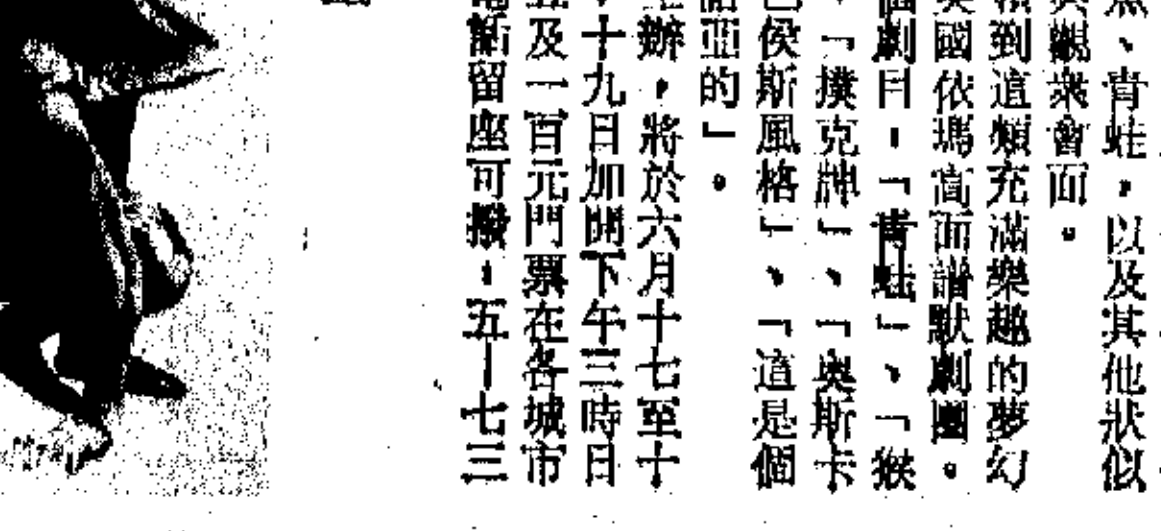 、青蛙，以及其他狀似
觀衆會面。
到這類充滿樂趣的夢幻
國依瑪高面譜默劇團。
劇目，「青蛙」、「猴
、「撲克牌」、「奧斯卡
侯斯風格」、「這是個
亞的」。
辦，將於六月十七至十
十九日加開下午三時日
及一百元門票在各城市
話留座可撥：五—七三